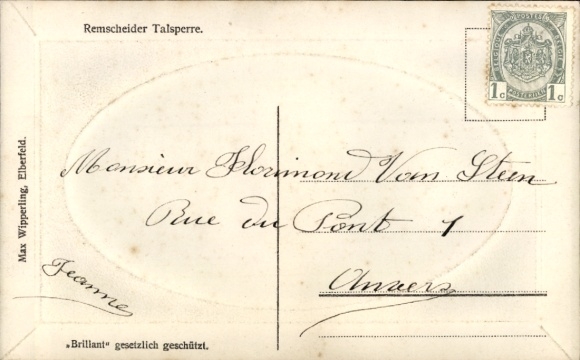 Remscheider Talsperre.
1c 1c
Monsieur Florimond Van Steen
Rue du Pont 1
Anvers
Jeanne
Max Wipperling, Elberfeld.
„Brillant“ gesetzlich geschützt.